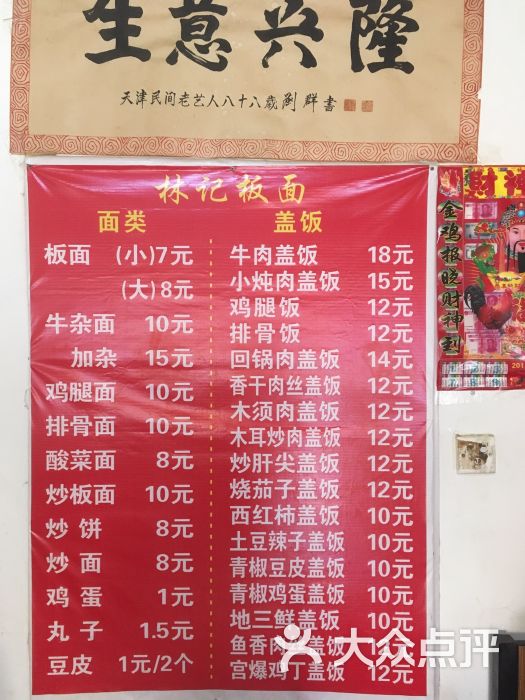 生意兴隆
天津民间老艺人八十八岁刷群書
林记板面
面类
板面 (小)7元
(大)8元
牛杂面 10元
加杂 15元
鸡腿面 10元
排骨面 10元
酸菜面 8元
炒板面 10元
炒饼 8元
炒面 8元
鸡蛋 1元
丸子 1.5元
豆皮 1元/2个
盖饭
牛肉盖饭 18元
小炖肉盖饭 15元
鸡腿饭 12元
排骨饭 12元
回锅肉盖饭 14元
香干肉丝盖饭 12元
木须肉盖饭 12元
木耳炒肉盖饭 12元
炒肝尖盖饭 12元
烧茄子盖饭 12元
西红柿盖饭 10元
土豆辣子盖饭 10元
青椒豆皮盖饭 10元
青椒鸡蛋盖饭 10元
地三鲜盖饭 10元
鱼香肉丝盖饭 12元
宫爆鸡丁盖饭 12元
金鸡报晓财神到
大众点评